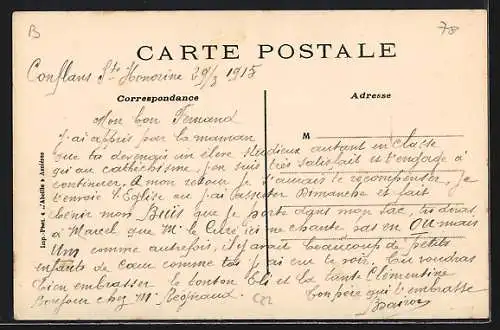 B
78
CARTE POSTALE
Conflans Ste Honorine 29/3 1915
Correspondance
Adresse
M
Mon bon Fernand
J'ai appris par la maman
que tu devenais un élève studieux autant en classe
qu'au cathéchisme, j'en suis très satisfait et t'engage à
continuer. A mon retour je saurais le recompenser, je
t'envoie l'Eglise ou j'ai assister Dimanche et fait
bénir mon Buis que je porte dans mon sac, tu diras
à Marcel que Mr le Curé ici ne chante pas en OU mais
Um comme autrefois, il y avait beaucoup de petits
enfants de cœur comme toi j'ai cru te voir. Tu voudras
bien embrasser le tonton Eli et la tante Clémentine
Bonjour chez Mr Régnaud. Ton père qui t'embrasse
Imp.-Phot. A. L'Abeille à Asnières